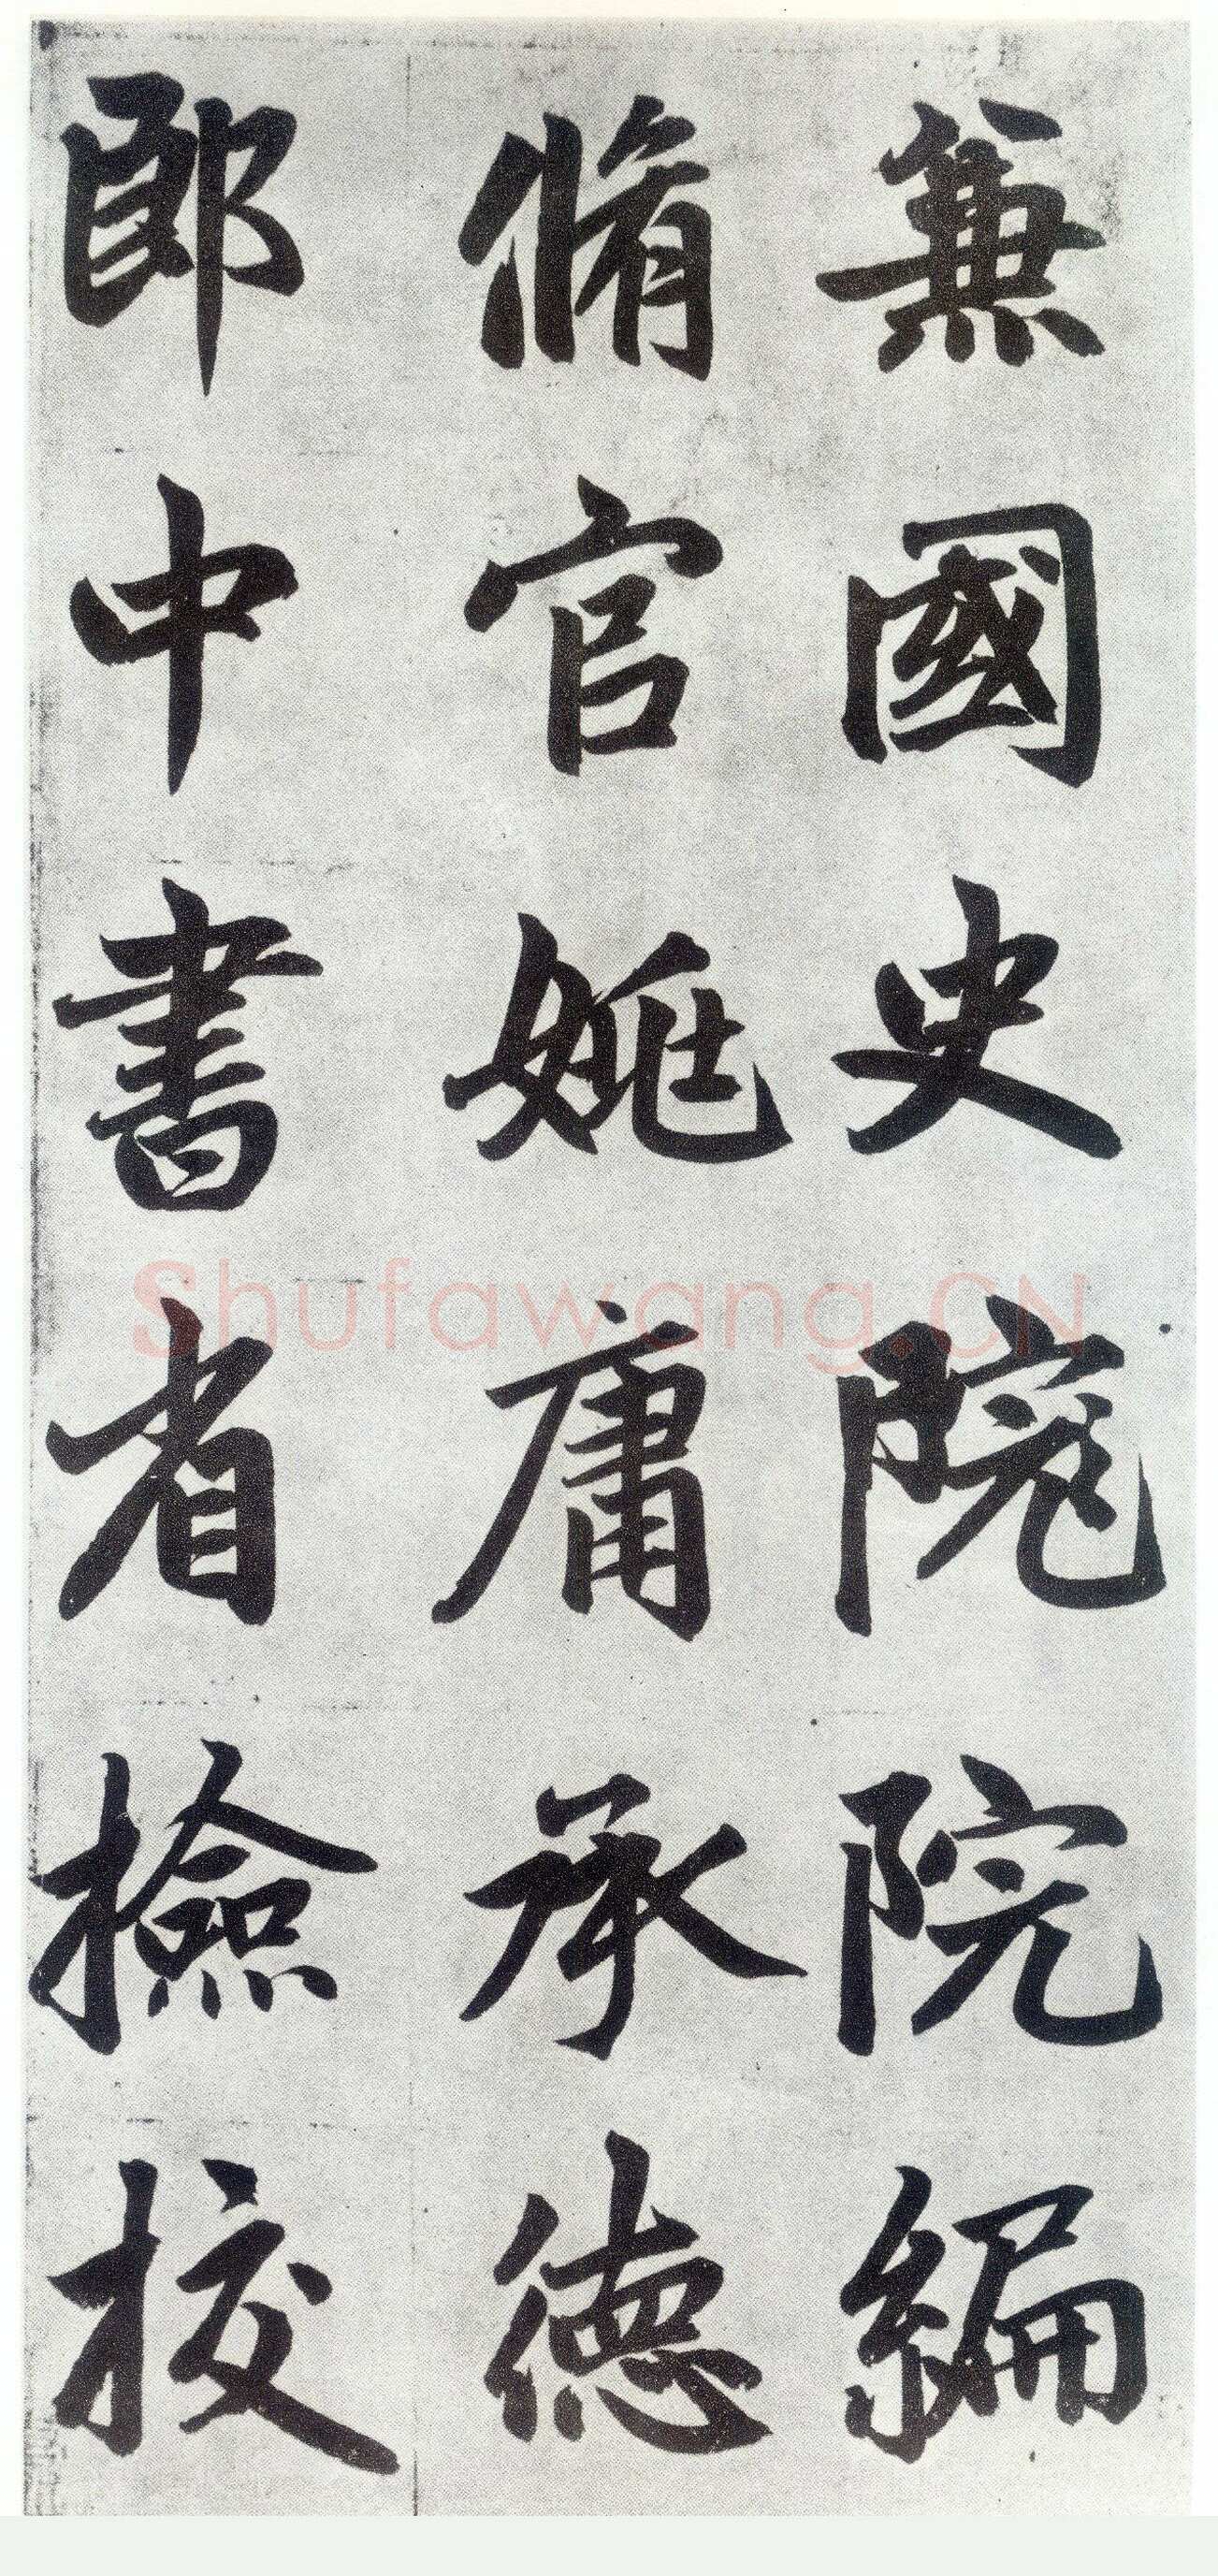 兼國史院院編
脩官姚庸承德
郎中書省撿挍
Shufawang.CN